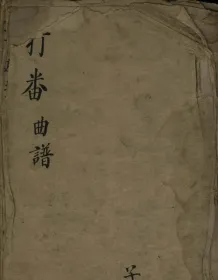 打番曲譜